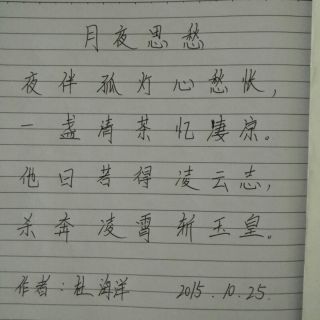 月夜思愁
夜伴孤灯心愁怅，
一盏清茶忆凄凉。
他日若得凌云志，
杀奔凌霄斩玉皇。
作者：杜海洋 2015.10.25.